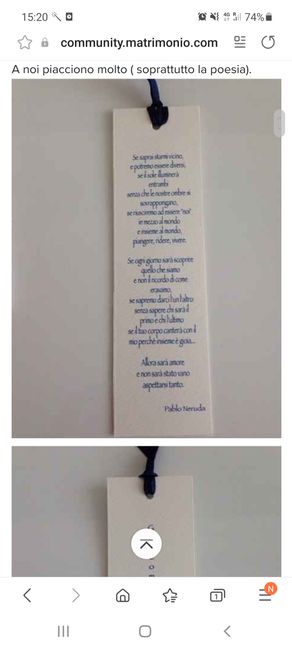 15:20
74%
community.matrimonio.com
A noi piacciono molto ( soprattutto la poesia).
Se saprai starmi vicino,
e potremo essere diversi,
se il sole illuminerà
entrambi
senza che le nostre ombre si
sovrappongano,
se riusciremo ad essere "noi"
in mezzo al mondo
e insieme al mondo,
piangere, ridere, vivere.
Se ogni giorno sarà scoprire
quello che siamo
e non il ricordo di come
eravamo,
se sapremo darci l'un l'altro
senza sapere chi sarà il
primo e chi l'ultimo
se il tuo corpo canterà con il
mio perchè insieme è gioia...
Allora sarà amore
e non sarà stato vano
aspettarsi tanto.
Pablo Neruda
1
N